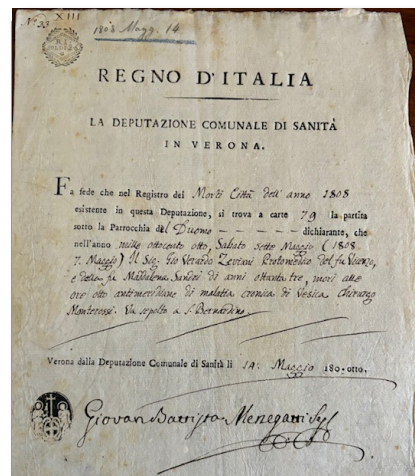 N.° 33 XIII
1808 Magg. 14
REGNO D'ITALIA
LA DEPUTAZIONE COMUNALE DI SANITÀ
IN VERONA.
Fa fede che nel Registro dei Morti Città dell'anno 1808
esistente in questa Deputazione, si trova a carte 79 la partita
sotto la Parrocchia del Duomo - - - - - dichiarante, che
nell'anno mille ottocento otto, Sabato sette Maggio (1808
7. Maggio) Il Sig. Gio Verardo Zeviani Protomedico del fu Vicenzo,
e della fu Maddalena Sandri di anni ottantatre, morì alle
ore otto antimeridiane di malattia cronica di Vesica Chirurgo
Monterossi. Va sepolto a S. Bernardino.
Verona dalla Deputazione Comunale di Sanità li 14. Maggio 180-otto.
Giovan Battista Menegatti